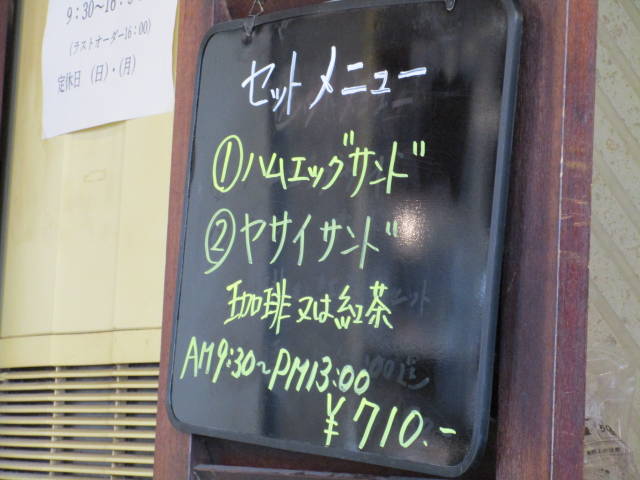 (ラストオーダー16:00)
定休日 (日)・(月)
セットメニュー
①ハムエッグサンド
②ヤサイサンド
珈琲又は紅茶
AM9:30~PM13:00
¥710.-